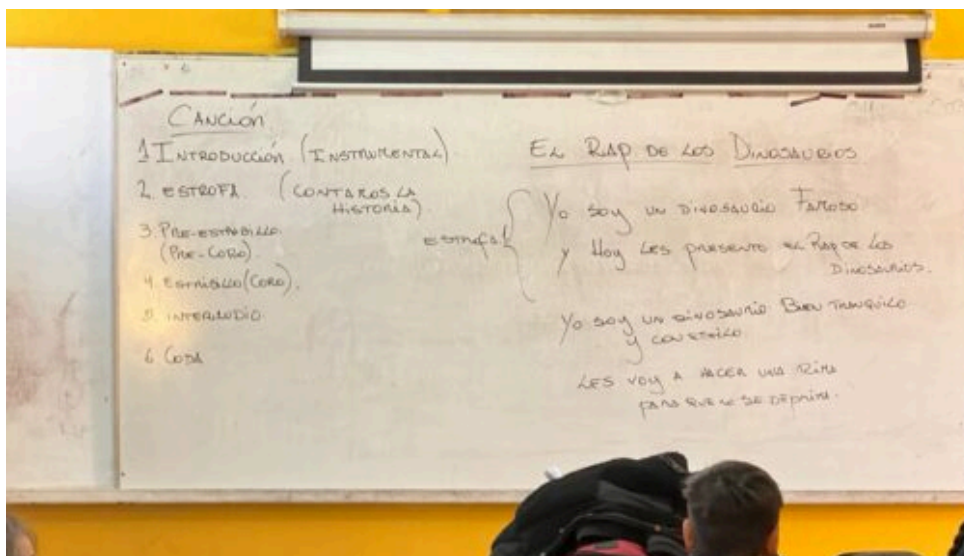 CANCIÓN
1 INTRODUCCIÓN (INSTRUMENTAL)
2. ESTROFA (CONTAMOS LA
HISTORIA)
3. PRE-ESTRIBILLO
(PRE-CORO).
4. ESTRIBILLO (CORO).
5. INTERLUDIO
6 CODA
EL RAP DE LOS DINOSAURIOS
ESTROFA
Yo soy UN DINOSAURIO FAMOSO
y Hoy LES PRESENTO EL RAP DE LOS
DINOSAURIOS.
Yo soy UN DINOSAURIO BIEN TRANQUILO
y CON ESTILO
LES VOY A HACER UNA RIMA
PARA QUE SE DEPRIMA.